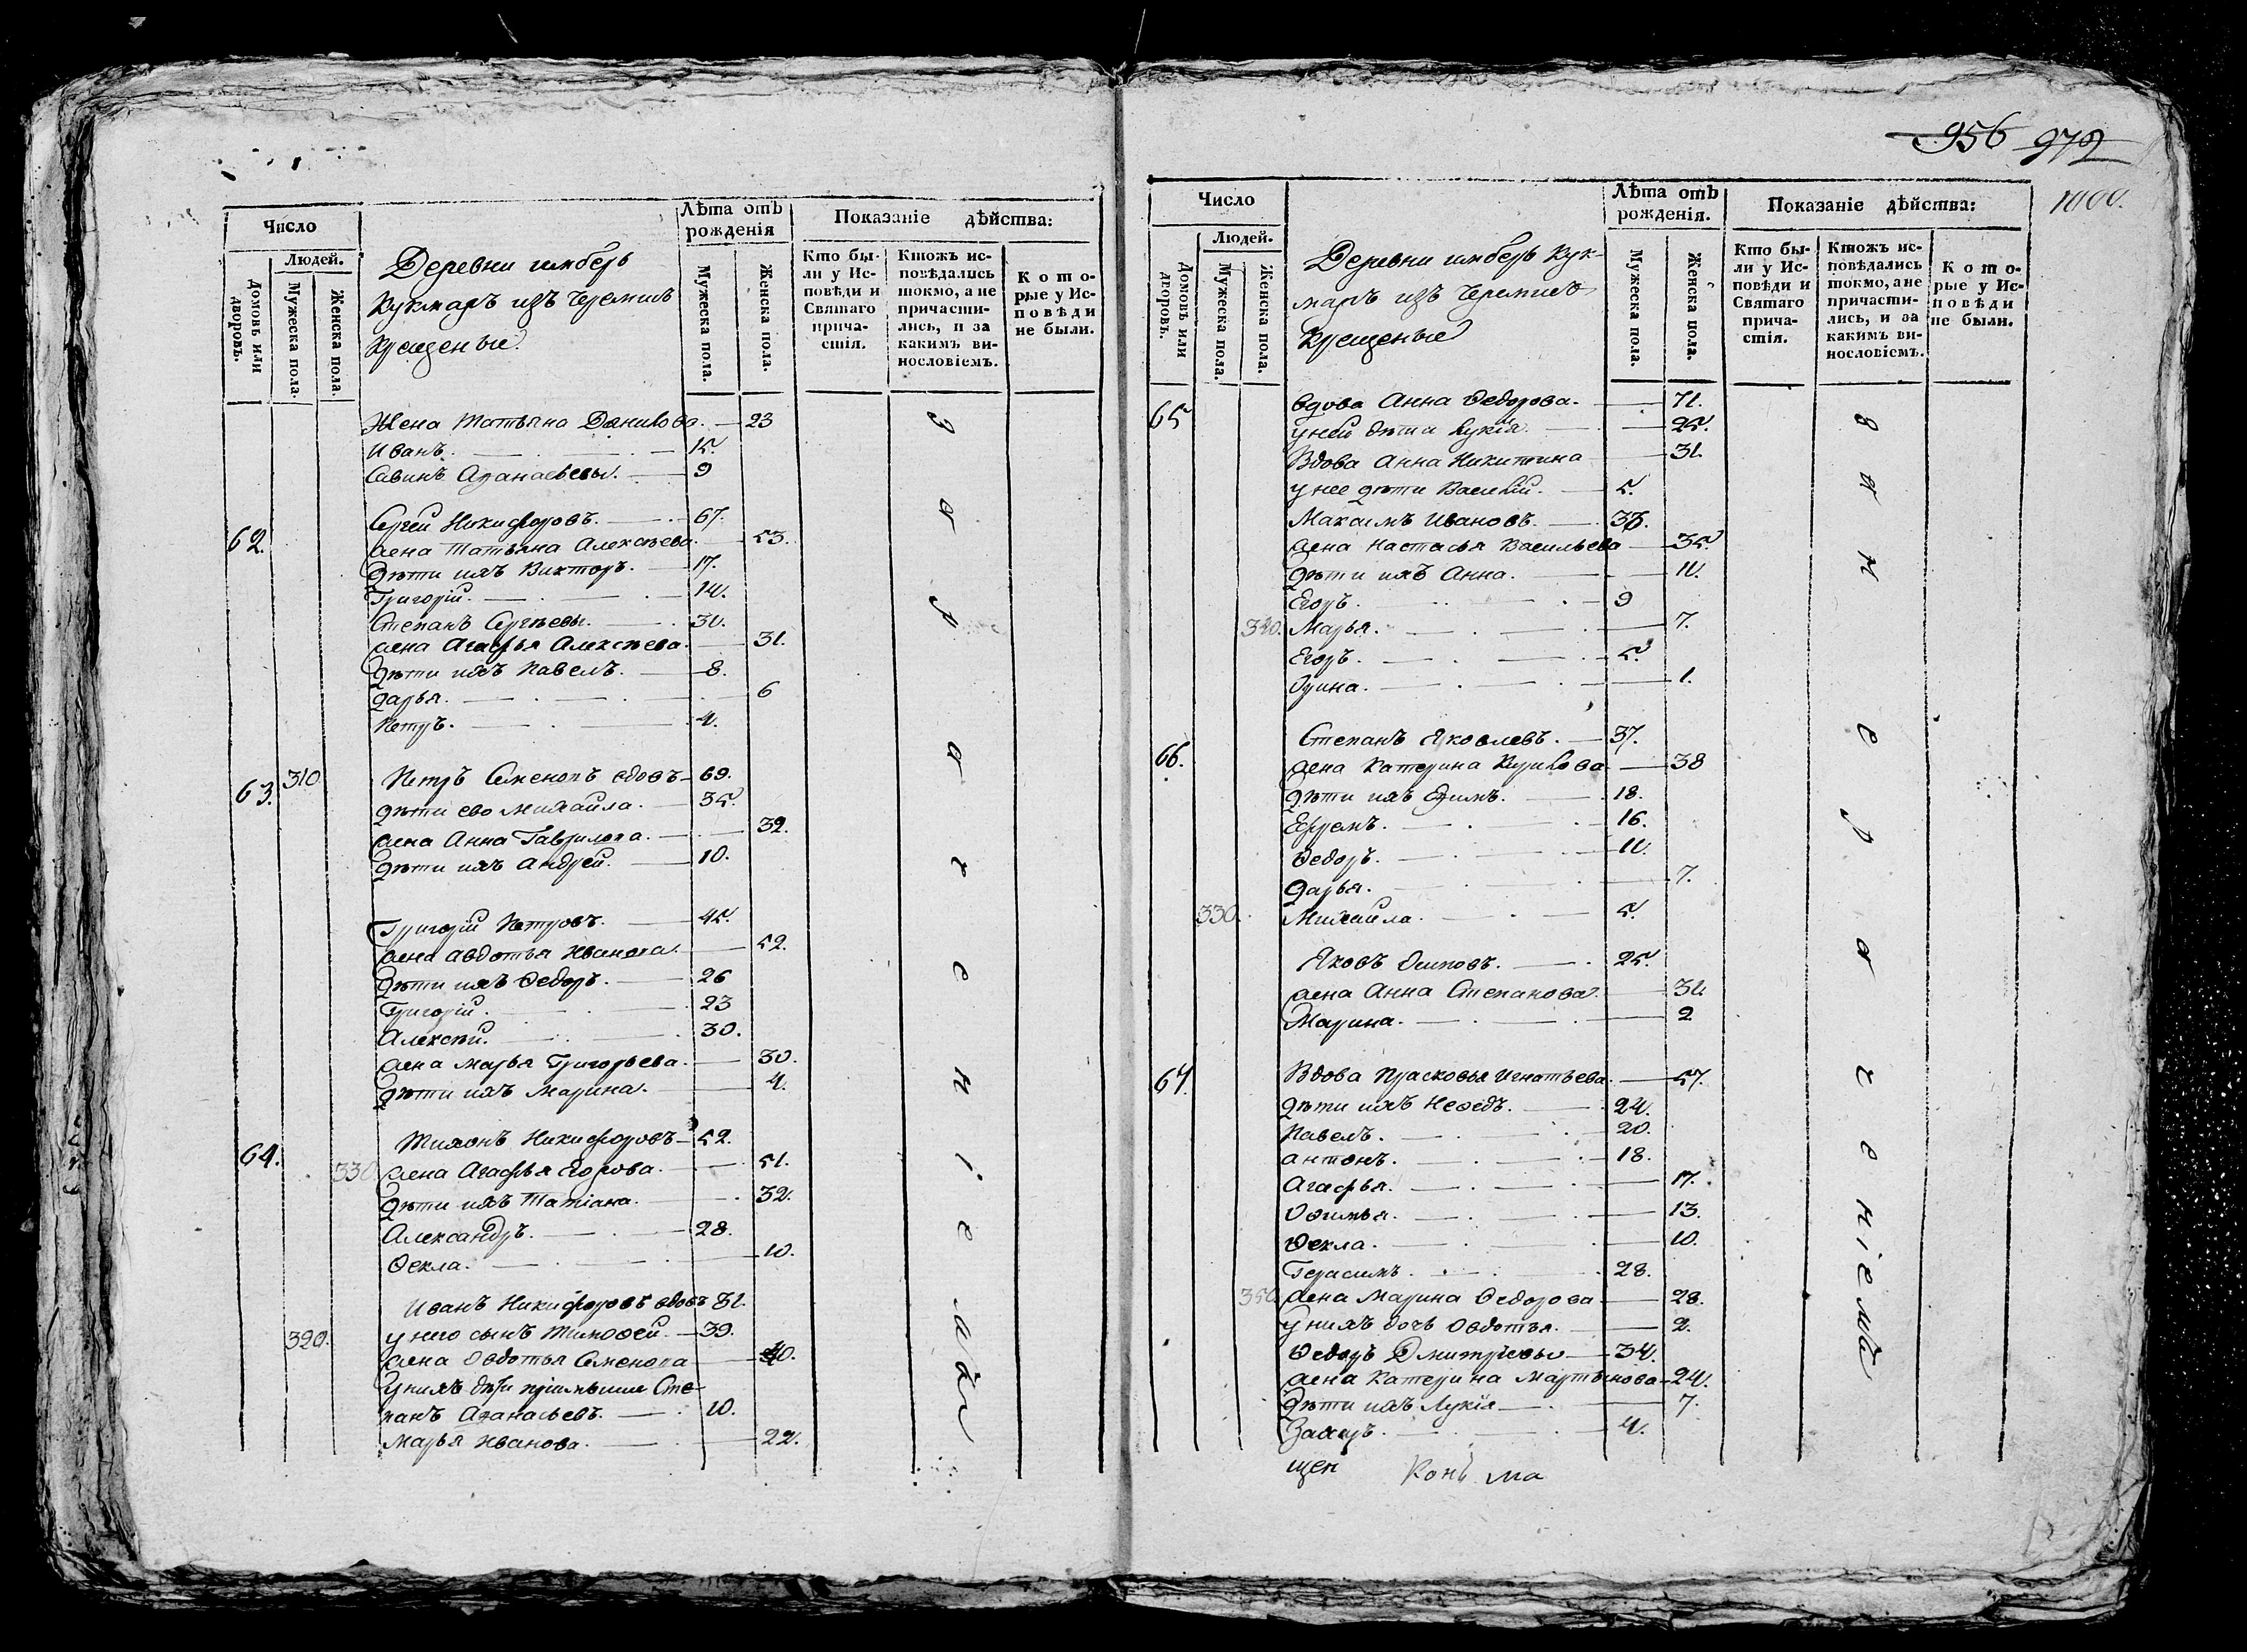 Число
Людей.
Домовъ или дворовъ.
Мужеска пола.
Женска пола.
Деревни
Кукмаръ изъ Черемисъ
Крещеные.
Лѣта отъ рождения
Мужеска пола.
Женска пола.
Показаніе дѣйства:
Кто бы-
ли у Ис-
повѣди и
Святаго
прича-
стія.
Ктожъ ис-
повѣдались
токмо, а не
причасти-
лись, и за
какимъ ви-
нословіемъ.
Кото-
рые у Ис-
повѣди
не были.
Жена Татьяна Данилова. — 23
Иванъ. — 15.
Савинъ Афанасьевы. — 9
62. Сергей Никифоровъ. — 67.
жена Татьяна Алексѣева. — 53.
дѣти ихъ Викторъ. — 17.
Григорій. — 14.
Степанъ Сергѣевы. — 30.
жена Агафья Алексѣева. — 31.
дѣти ихъ Павелъ. — 8.
дарья. — 6
Петръ. — 4.
63. 310 Петръ Семеновъ вдовъ — 69.
дѣти ево Михайла. — 35.
жена Анна Гаврилова. — 32.
дѣти ихъ Андрей. — 10.
Григорій Петровъ. — 45.
жена Авдотья Иванова. — 52.
дѣти ихъ Ѳедоръ. — 26
Григорій. — 23
Алексѣй. — 30.
жена Марья Григорьева. — 30.
дѣти ихъ Марина. — 4.
64. Тихонъ Никифоровъ — 52.
330 жена Агафья Егорова. — 51.
дѣти ихъ Татіана. — 32.
Александръ. — 28.
Ѳекла. — 10.
Иванъ Никифоровъ вдовъ 81.
320. у него сынъ Тимоѳей. — 39.
жена Овдотья Семенова — 40.
у нихъ дѣти пріимыши Сте-
панъ Афанасьевъ. — 10.
Марья Иванова. — 22.
956 972
1000.
Число
Людей.
Домовъ или дворовъ.
Мужеска пола.
Женска пола.
Деревни Кук-
маръ изъ Черемисъ
Крещеные
Лѣта отъ рожденія.
Мужеска пола.
Женска пола.
Показаніе дѣйства:
Кто бы-
ли у Ис-
повѣди и
Святаго
прича-
стія.
Ктожъ ис-
повѣдались
токмо, а не
причасти-
лись, и за
какимъ ви-
нословіемъ.
Кото-
рые у Ис-
повѣди
не были.
65 вдова Анна Ѳедорова. — 71.
у ней дѣти Лукія. — 25.
Вдова Анна Никитина — 31.
у нее дѣти Василій. — 5.
Максимъ Ивановъ. — 33.
жена Настасья Васильева — 35.
дѣти ихъ Анна. — 11.
Егоръ. — 9
340. Марья. — 7.
Егоръ. — 5.
Орина. — 1.
66. Степанъ Яковлевъ. — 37.
жена Катерина Кирилова — 38
дѣти ихъ Ефимъ. — 18.
Ефремъ. — 16.
Ѳедоръ. — 11.
дарья. — 7.
330. Михайла. — 5.
Яковъ Осиповъ. — 25.
жена Анна Степанова. — 31.
Марина. — 2
67. Вдова Прасковья Игнатьева. — 57.
дѣти ихъ Неѳедъ. — 24.
Павелъ. — 20.
антонъ. — 18.
Агафья. — 17.
Офимья. — 13.
Ѳекла. — 10.
Герасимъ. — 28.
350 жена Марина Ѳедорова — 28.
у нихъ дочь Овдотья. — 2.
Ѳедоръ Дмитріевы — 34.
жена Катерина Мартынова — 24.
дѣти ихъ Лукія — 7.
Захаръ. — 4.
щен ма